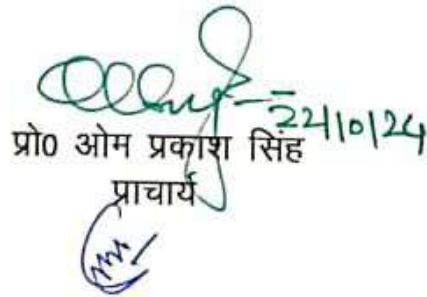 22/10/24
प्रो0 ओम प्रकाश सिंह
प्राचार्य